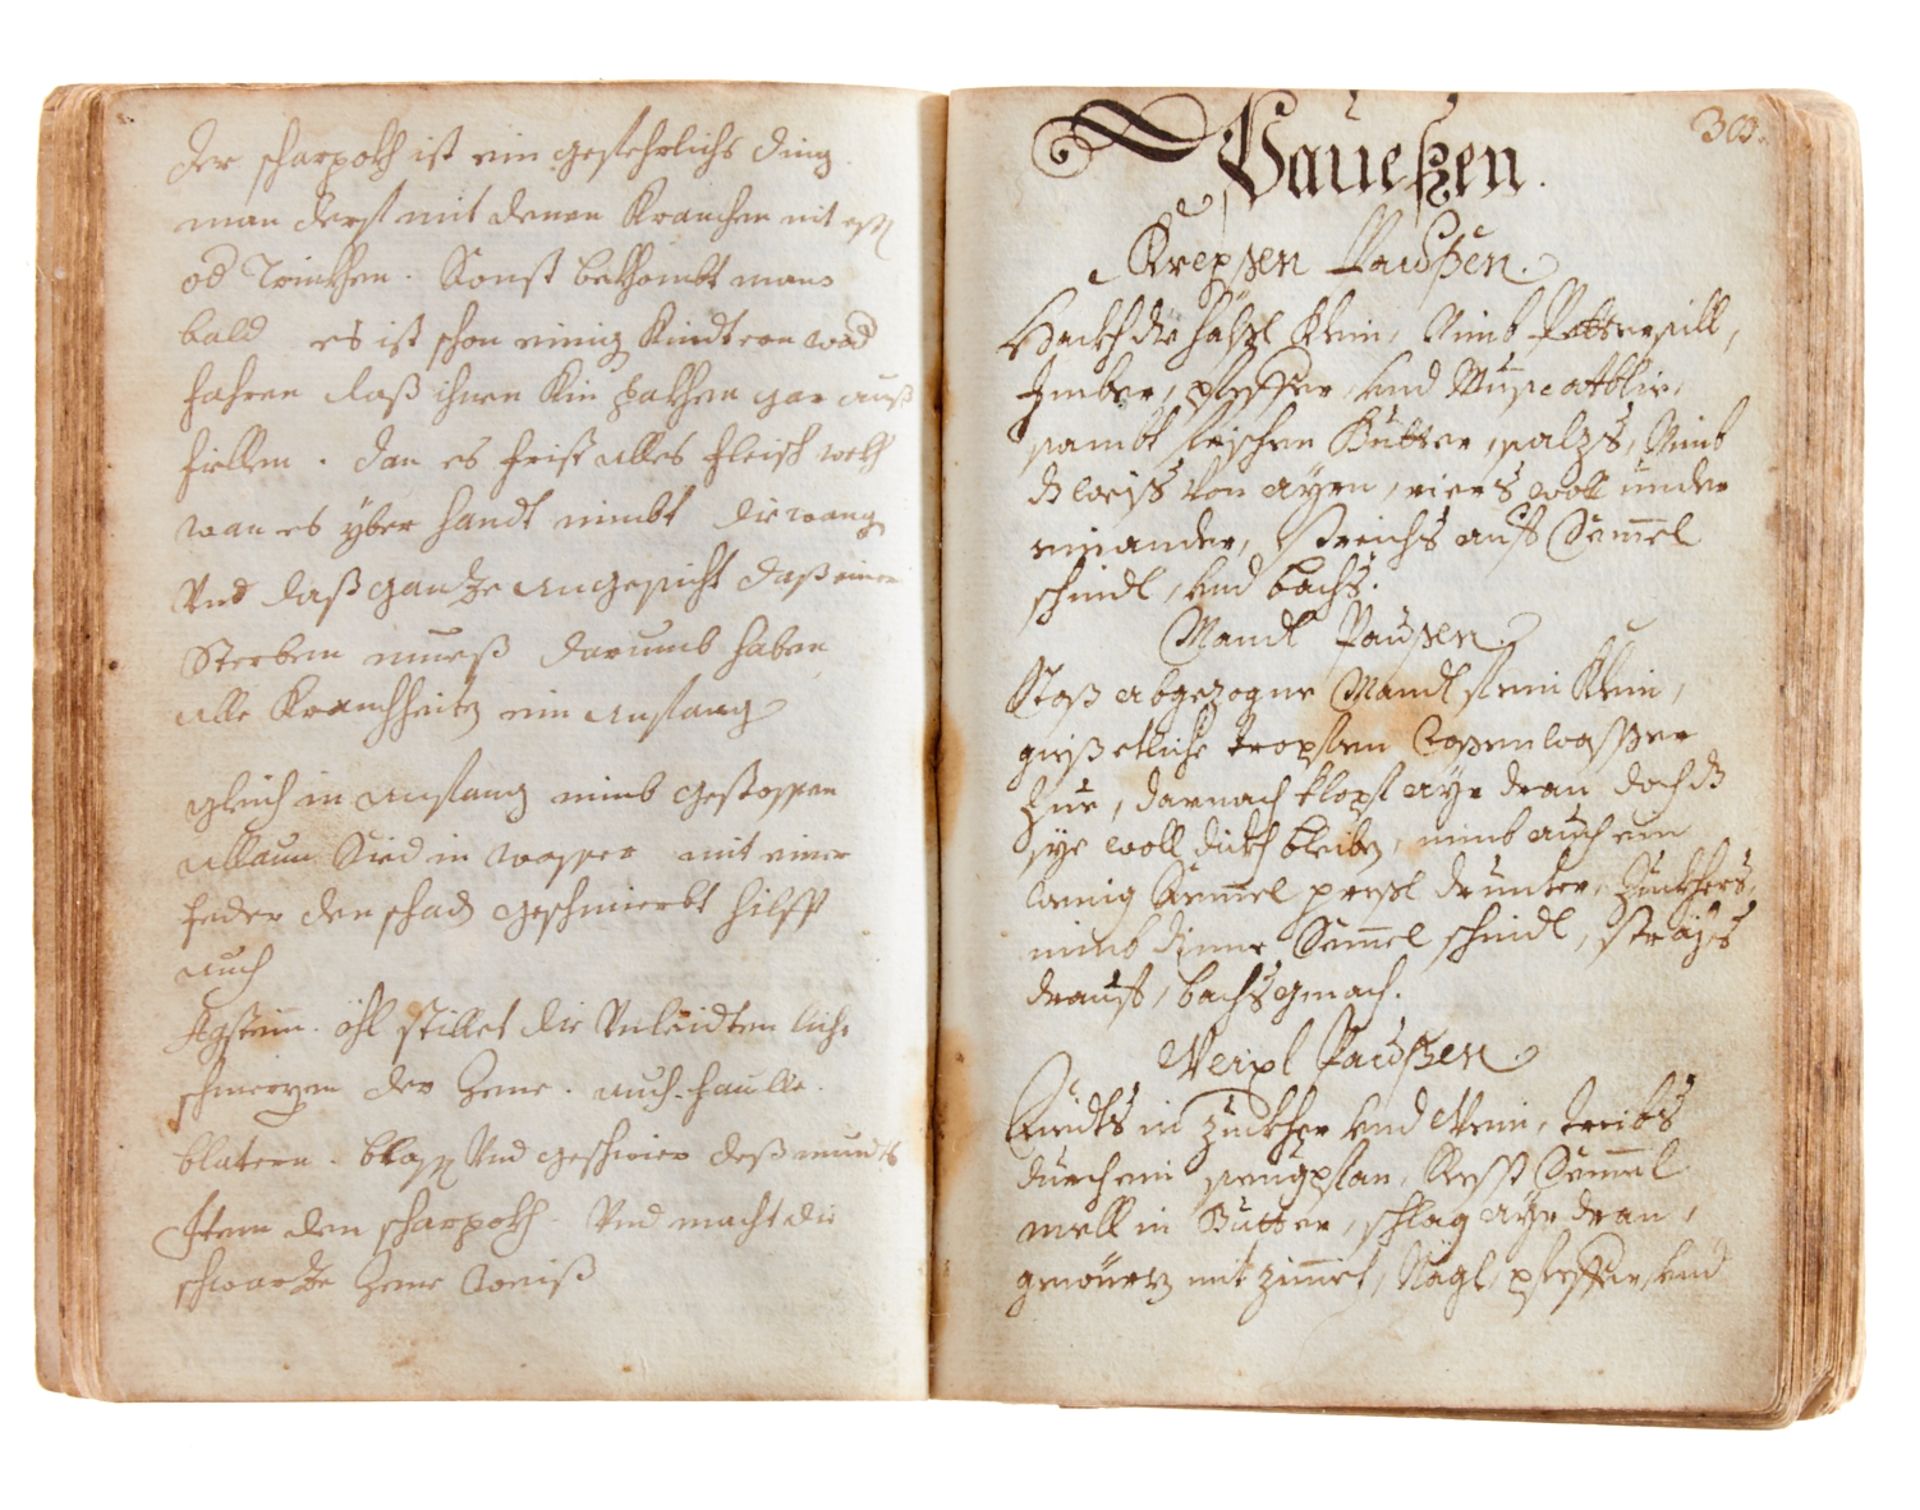 der scharpokh ist ein gefehrlichs ding
man derf mit denen Krancken nit essen
od Trinkhen. Sonst bekhombt mans
bald es ist schon einig Kindtern wid
fahren daß ihnen Kin bakhen gar auß
fiellen. dan es frist alles fleisch wekh
wan es yber handt nimbt die wang
Und daß gantze angesicht daß einer
Sterben mueß darumb haben
alle Kranchheiten ein anfang
gleich in anfang nimb gestossen
allaun Sied in wasser mit einer
feder den schad geschmierbt hilfft
auch
Agstein. öhl stillet die Unleidten liche
schmerzen der Zene. auch faulle
blatern. Und geschwier deß mundts
Item den scharpokh. Und macht die
schwartze Zene weiß
303.
Pauesen.
Krepsen Pauesen.
Hackh die hälsl klein, Nimb Pettersill,
Imber, pfeffer, und Muscatblie,
sambt frischen Butter, salzs, Nimb
dz weiss von ayrn, riers woll under
einander, Streichs auf Semel
schnidl, und bachs.
Mandl Pausen.
Stoß abgezogne Mandl fein klein,
gieß etliche tropfen Rosenwasser
Zue, darnach klopf ayr dran doch dz
sye woll dickh bleiben, nimb auch ein
wenig Semel presl drunter, Zuckhers,
nimb dinne Semel schnidl, Straichs
drauf, bachs gmach.
Weixl Pauesen.
Siedts in Zuckher und Wein, treibs
durch ein seichpfan, Röst Semel
mell in Butter, schlag ayr dran,
gewürz mit zimet, Nägl, pfeffer, und